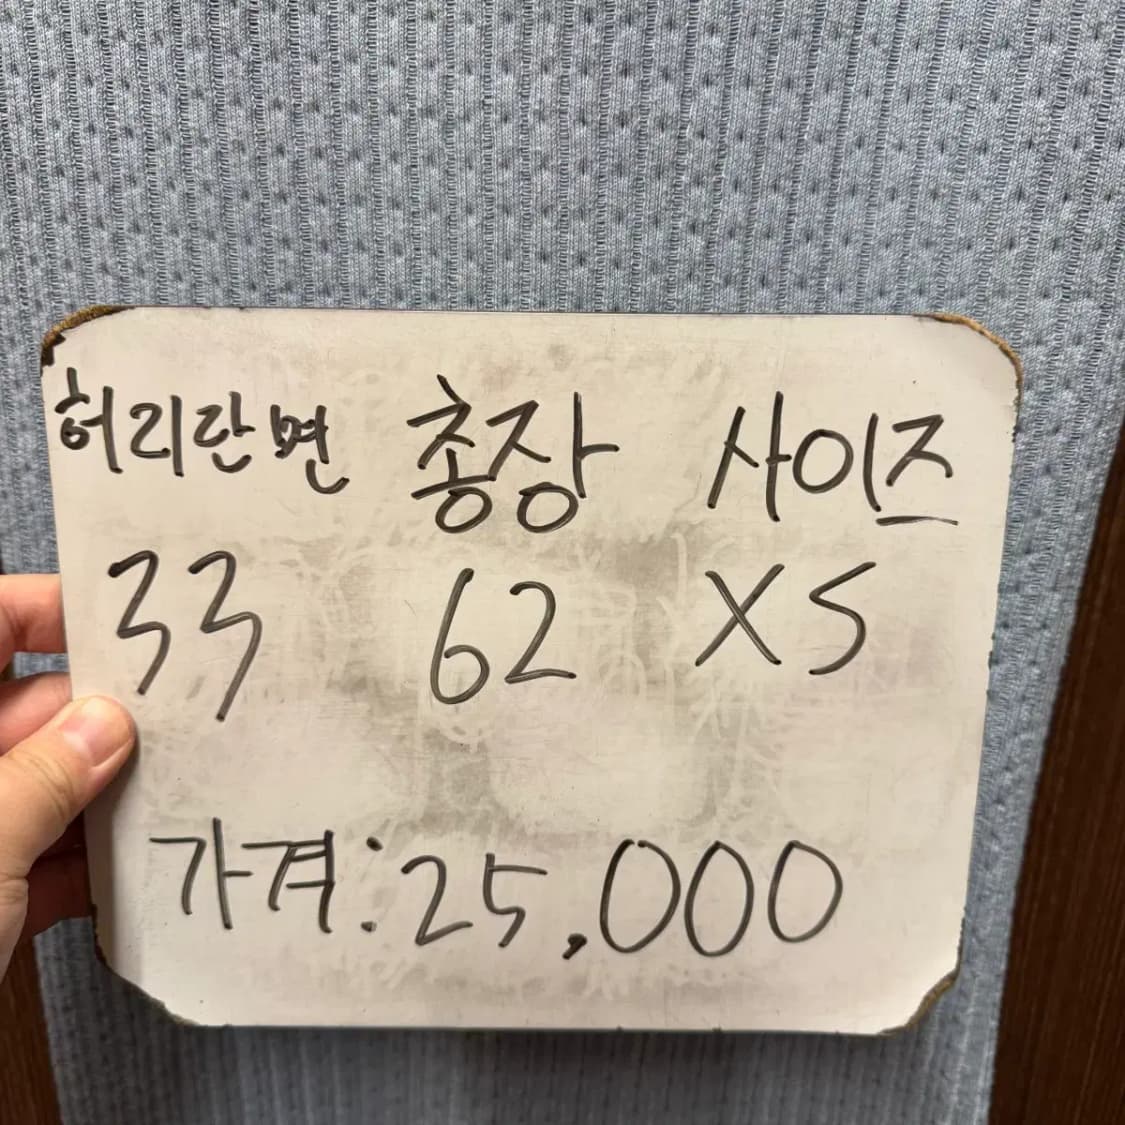 허리란면 총장 사이즈
33 62 XS
가격:25,000